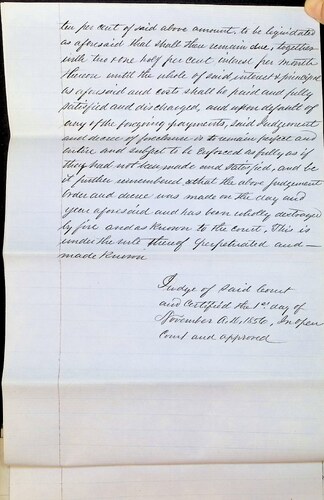 ten per cent of said above amount, to be liquidated
as aforesaid that shall then remain due, together
with two & one half per cent interest per month
thereon until the whole of said interest & principal
as aforesaid and costs shall be paid and fully
satisfied and discharged, and upon default of
any of the forgoing payments, said Judgement
and decree of foreclosure is to remain perfect and
entire and subject to be enforced as fully, as if
they had not been made and satisfied, and be
it further remembered, that the above judgement
order and decree was made on the day and
year aforesaid and has been wholly destroyed
by fire and as known to the court, This is
under the rule thereof perpetuated and —
made known
Judge of said Court
and certified the 1st day of
November A.D. 1856, In open
Court and approved